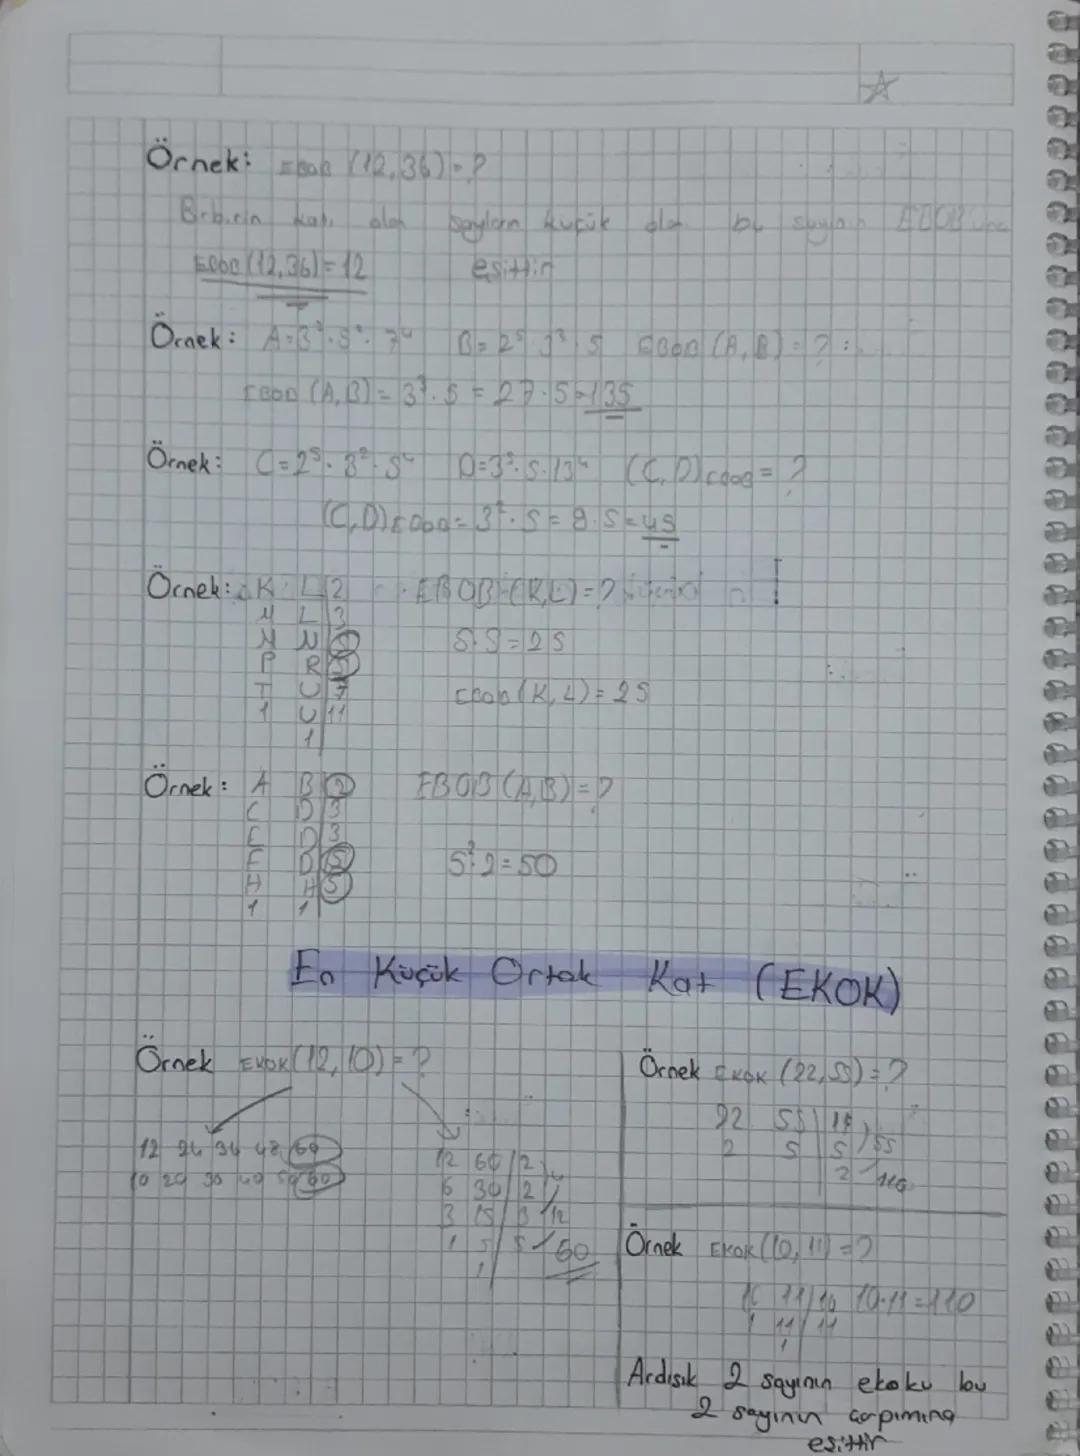 Örnek: EBOB (12,36) = ?
Birbirin katı olan sayıların küçük olan bu sayının EBOB'una
EBOB (12,36) = 12 eşittir
Örnek: A = 3³ · 5² · 7⁴ B = 2⁵ 3³ 5 EBOB (A, B) = ?
EBOB (A, B) = 3³ · 5 = 27 · 5 = 135
Örnek: C = 2⁵ · 3² · 5⁴ D = 3² · 5 · 13⁴ (C, D) EBOB = ?
(C, D) EBOB = 3² · 5 = 9 · 5 = 45
Örnek: K L 2 EBOB (K,L) = ?
M L 3
M N 5 5·5 = 25
P R 5
T U 7 EBOB (K, L) = 25
1 U 11
1
Örnek: A B 2 EBOB (A,B) = ?
C D 3
E D 3
F D 5 5²·2 = 50
H H 5
1 1
En Küçük Ortak Kat (EKOK)
Örnek EKOK (12, 10) = ?
12 24 36 48 60
10 20 30 40 50 60
12 60 2
6 30 2
3 15 3 12
1 5 5 60
1
Örnek EKOK (22, 55) = ?
22 55 11
2 5 5 55
2 110
Örnek EKOK (10, 11) = ?
10 11 10 10·11 = 110
1 11 11
1
Ardışık 2 sayının ekoku bu
2 sayının çarpımına
eşittir